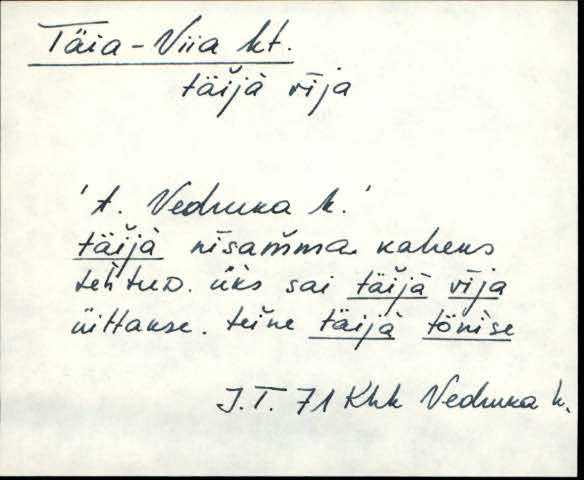 Täia-Viia kt.
täijà vīja
't. Vedruka k.'
täijà nīsam̆ma kaheks
tehtuD. üks sai täijà vīja
üittakse. teine täijà tönise
J.T. 71 Khk Vedruka k.